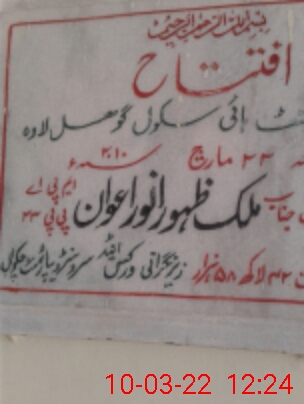 بسم اللہ الرحمن الرحیم
افتتاح
ہائی سکول گوھل لاوہ
۲۲ مارچ سنہ ۲۰۱۰ء
جناب ملک ظہور انور اعوان ایم پی اے پی پی ۲۳
۴۲ لاکھ ۵۸ ہزار زیرنگرانی ورکس اینڈ سروسز ڈیپارٹمنٹ چکوال
10-03-22 12:24